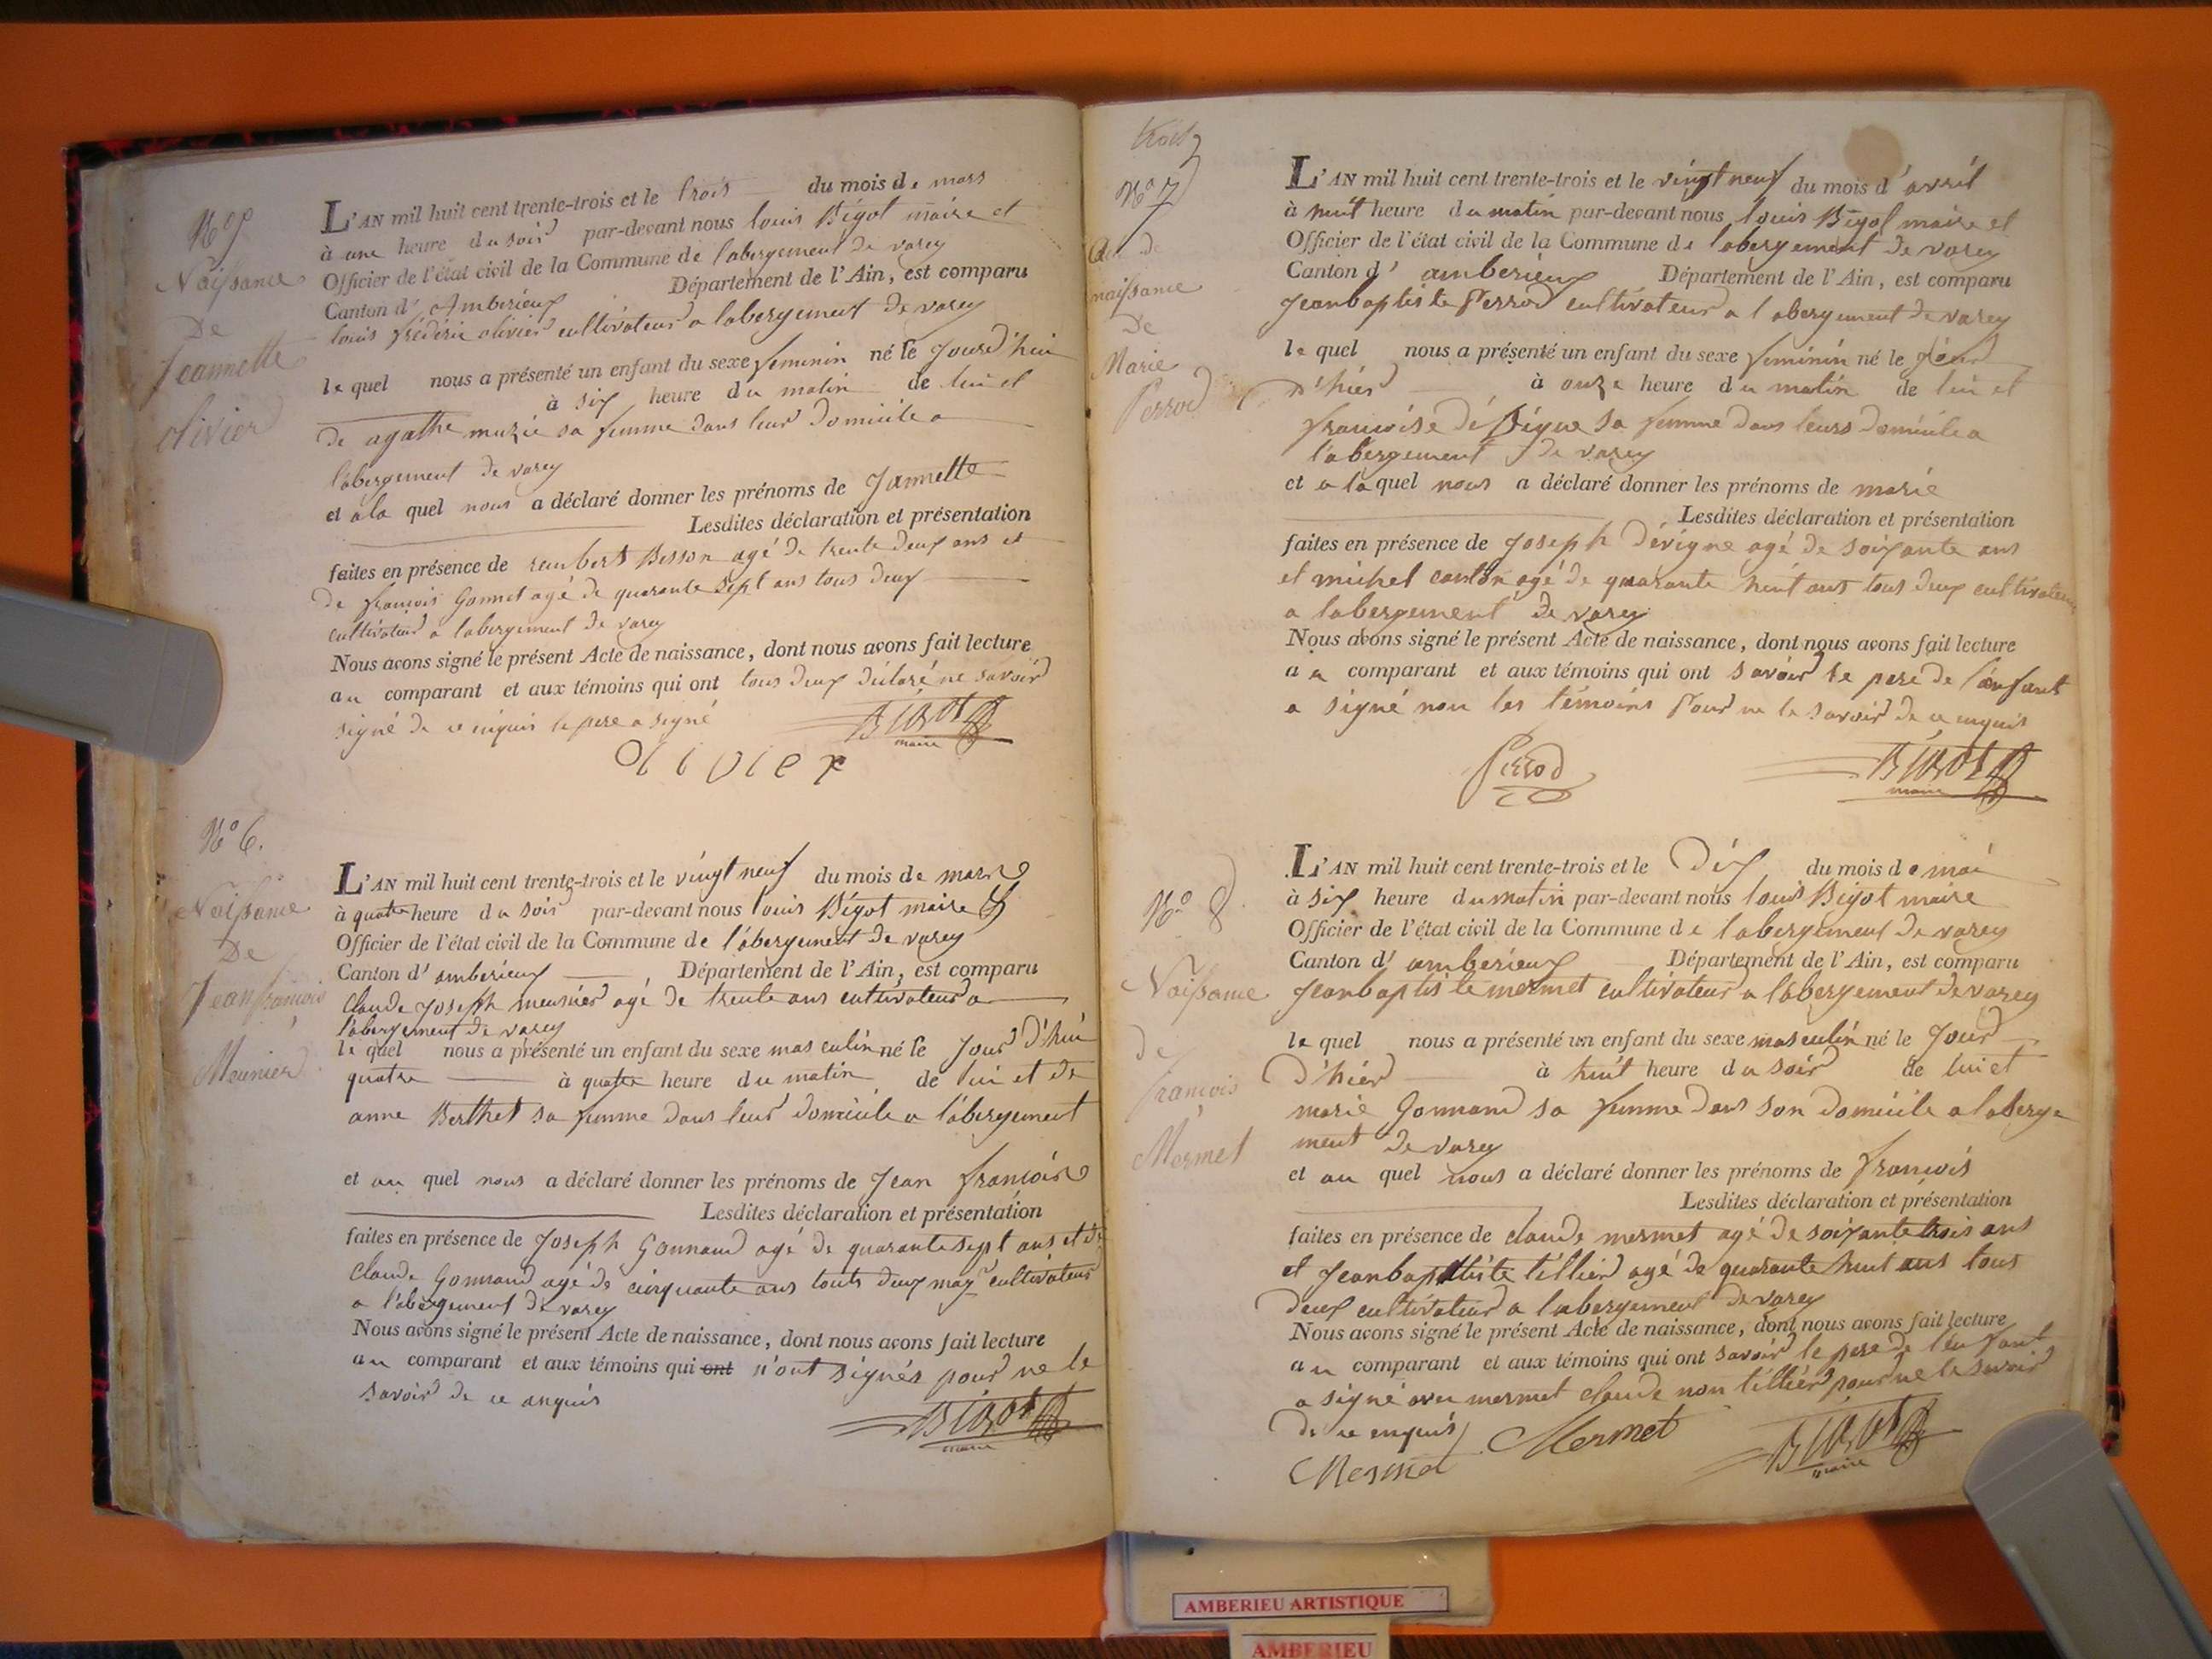 N° 5
Naissance
De
Jeannette
olivier
L'AN mil huit cent trente-trois et le trois du mois de mars
à une heure du soir par-devant nous louis Bigot maire et
Officier de l'état civil de la Commune de l'abergement de varey
Canton d' Amberieux Département de l'Ain, est comparu
louis frédéric olivier cultivateur a labergement de varey
le quel nous a présenté un enfant du sexe feminin né le Jourd'hui
à six heure du matin de lui et
de agathe sa femme dans leur Domicile a
l'abergement de varey
et a la quel nous a déclaré donner les prénoms de Jannette
Lesdites déclaration et présentation
faites en présence de rambert Besson agé de trente deux ans et
de françois Gonnet agé de quarante sept ans tous deux
cultivateur a labergement de varey
Nous avons signé le présent Acte de naissance, dont nous avons fait lecture
au comparant et aux témoins qui ont tous deux déclaré ne savoir
signé de ce enquis le pere a signé
Bigot
maire
Olivier
N° 6.
Naissance
De
Jean françois
Meunier
L'AN mil huit cent trente-trois et le vingt neuf du mois de mars
à quatre heure du soir par-devant nous louis Bigot maire et
Officier de l'état civil de la Commune de l'abergement de varey
Canton d' amberieux Département de l'Ain, est comparu
claude Joseph meunier agé de trente ans cultivateur a
l'abergement de varey
le quel nous a présenté un enfant du sexe masculin né le Jour D'hui
quatre à quatre heure du matin de lui et de
anne Berthet sa femme dans leur domicile a l'abergement
et au quel nous a déclaré donner les prénoms de Jean françois
Lesdites déclaration et présentation
faites en présence de Joseph Gonnand agé de quarante sept ans et de
claude Gonnand agé de cinquante ans touts deux cultivateur
a l'abergement de varey
Nous avons signé le présent Acte de naissance, dont nous avons fait lecture
au comparant et aux témoins qui ont n'ont signés pour ne le
savoir de ce anquis
Bigot
maire
trois
N° 7
Acte de
naissance
De
Marie
Perrod
L'AN mil huit cent trente-trois et le vingt neuf du mois d'avril
à huit heure du matin par-devant nous louis Bigot maire et
Officier de l'état civil de la Commune de labergement de varey
Canton d' amberieux Département de l'Ain, est comparu
Jeanbaptiste Perrod cultivateur a labergement de varey
le quel nous a présenté un enfant du sexe feminin né le Jour
D'hier à onze heure du matin de lui et
françoise sa femme dans leurs domicile a
l'abergement de varey
et a la quel nous a déclaré donner les prénoms de marie
Lesdites déclaration et présentation
faites en présence de Joseph Dévigne agé de soixante ans
et michel agé de quarante huit ans tous deux cultivateur
a labergement de varey
Nous avons signé le présent Acte de naissance, dont nous avons fait lecture
au comparant et aux témoins qui ont savoir le pere de l'enfant
a signé non les témoins Pour ne le savoir de ce enquis
Perrod
Bigot
maire
N° 8
Naissance
de
françois
Mermet
L'AN mil huit cent trente-trois et le Dix du mois de mai
à six heure du matin par-devant nous louis Bigot maire
Officier de l'état civil de la Commune de labergement de varey
Canton d' amberieux Département de l'Ain, est comparu
Jeanbaptiste mermet cultivateur a labergement de varey
le quel nous a présenté un enfant du sexe masculin né le Jour
D'hier à huit heure du soir de lui et
marie Gonnand sa femme dans son domicile a laberge
ment de varey
et au quel nous a déclaré donner les prénoms de françois
Lesdites déclaration et présentation
faites en présence de claude mermet agé de soixante trois ans
et Jeanbaptiste tillier agé de quarante huit ans tous
Deux cultivateur a labergement de varey
Nous avons signé le présent Acte de naissance, dont nous avons fait lecture
au comparant et aux témoins qui ont savoir le pere de l'enfant
a signé avec mermet claude non tillier pour ne le savoir
De ce enquis
Mermet
Mermet
Bigot
maire
AMBERIEU ARTISTIQUE
AMBERIEU